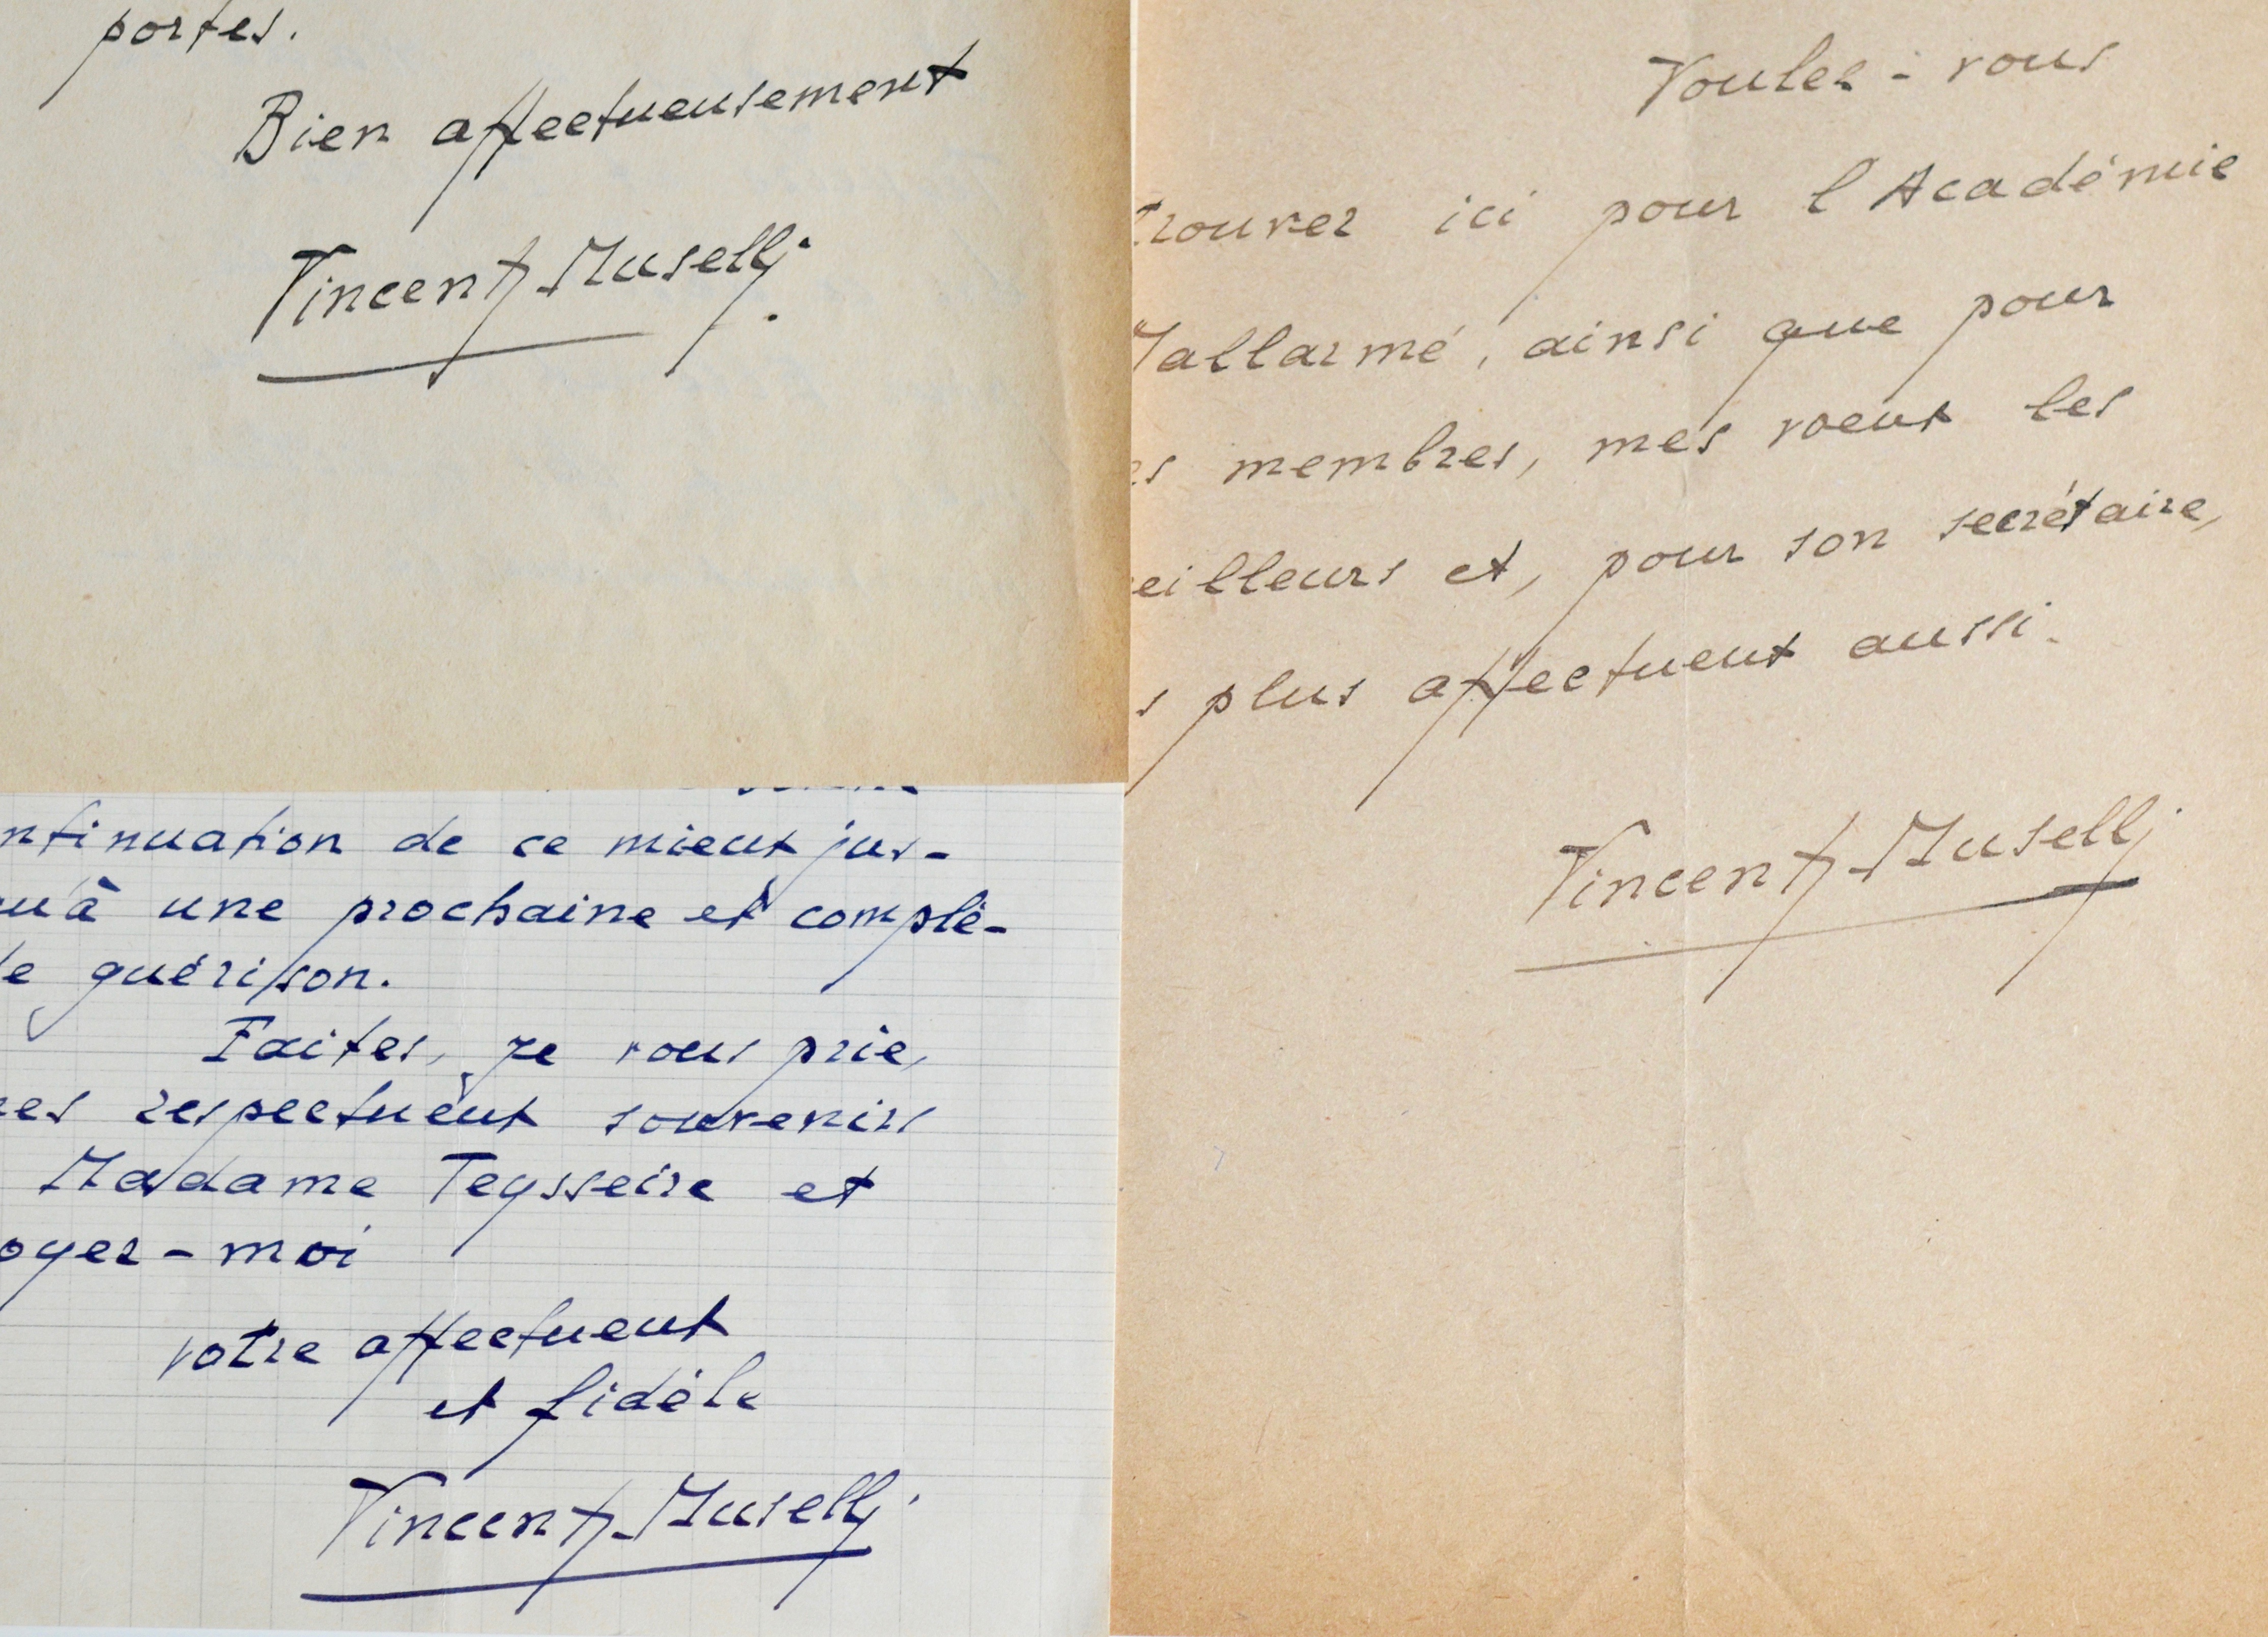 portes.
Bien affectueusement
Vincent Muselli
Voulez-vous
trouver ici pour l'Académie
Mallarmé, ainsi que pour
es membres, mes voeux les
eilleurs et, pour son secrétaire,
s plus affectueux aussi.
Vincent Muselli
ntinuation de ce mieux jus-
u'à une prochaine et complè-
te guérison.
Faites, je vous prie,
es respectueux souvenirs
Madame Teysseire et
oyez-moi
votre affectueux
et fidèle
Vincent Muselli